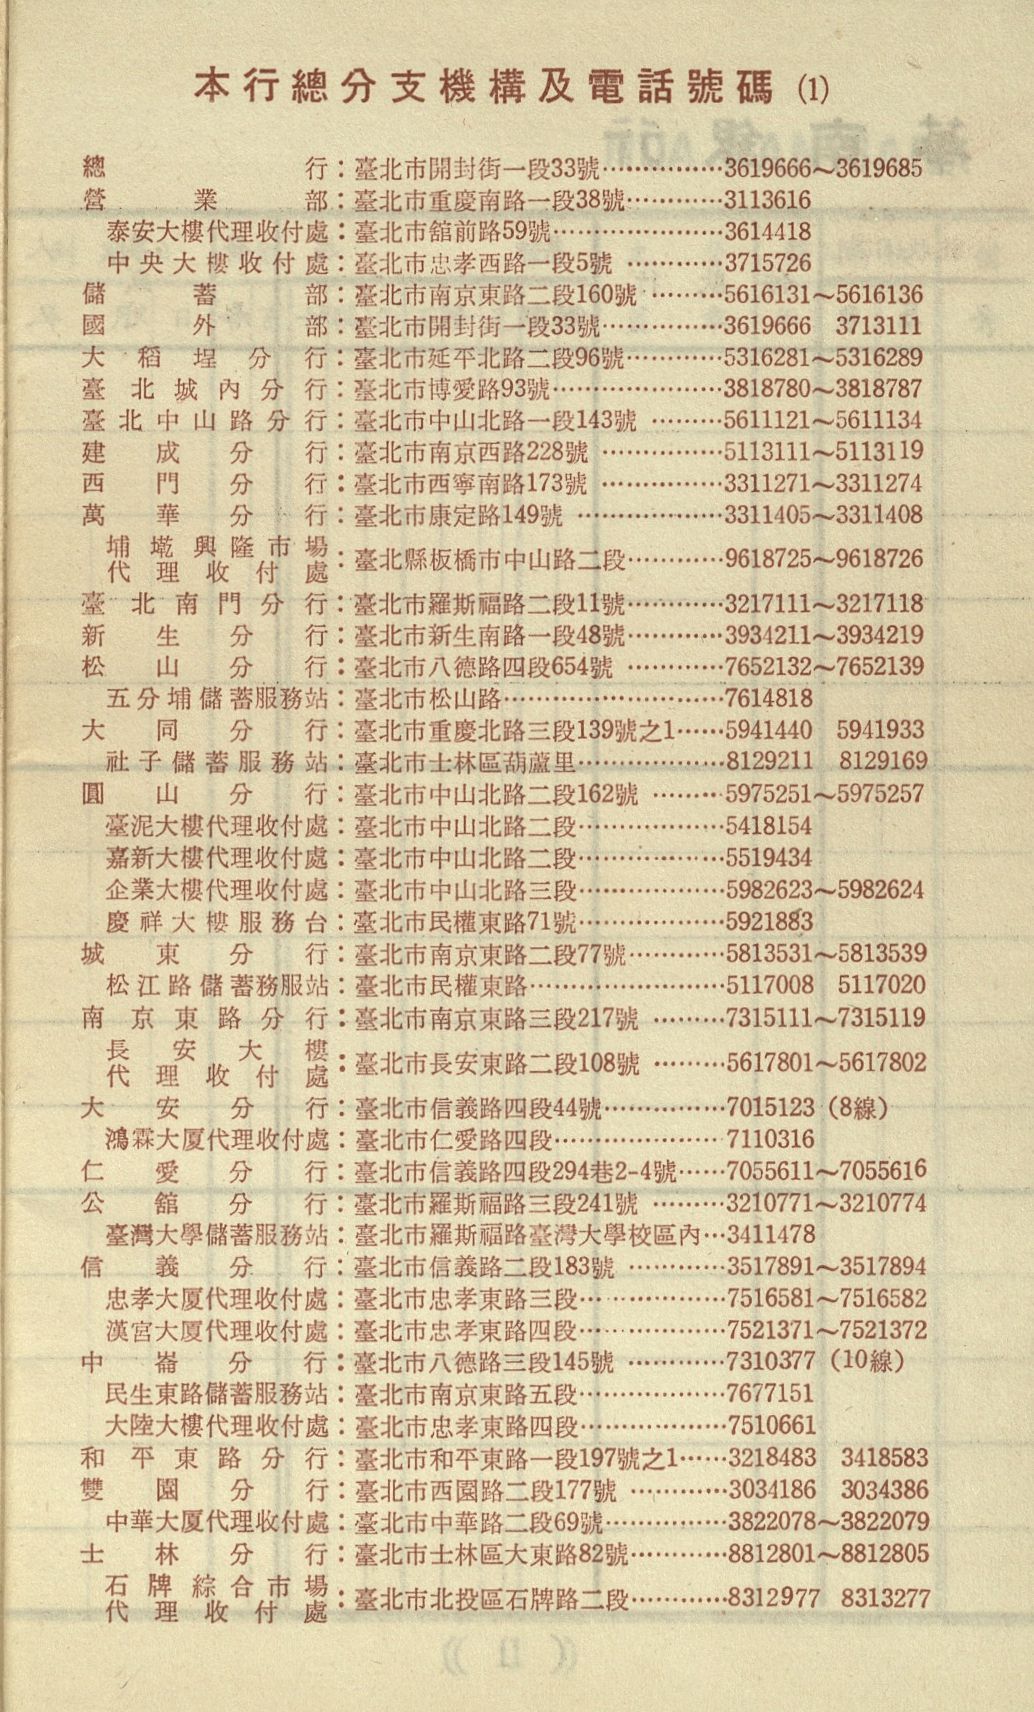 本行總分支機構及電話號碼 (1)
總行：臺北市開封街一段33號……………3619666～3619685
營業部：臺北市重慶南路一段38號…………3113616
泰安大樓代理收付處：臺北市舘前路59號…………………3614418
中央大樓收付處：臺北市忠孝西路一段5號 …………3715726
儲蓄部：臺北市南京東路二段160號 ………5616131～5616136
國外部：臺北市開封街一段33號……………3619666 3713111
大稻埕分行：臺北市延平北路二段96號…………5316281～5316289
臺北城內分行：臺北市博愛路93號…………………3818780～3818787
臺北中山路分行：臺北市中山北路一段143號 ………5611121～5611134
建成分行：臺北市南京西路228號 ……………5113111～5113119
西門分行：臺北市西寧南路173號 ……………3311271～3311274
萬華分行：臺北市康定路149號 ………………3311405～3311408
埔墘興隆市場
代理收付處：臺北縣板橋市中山路二段…………9618725～9618726
臺北南門分行：臺北市羅斯福路二段11號…………3217111～3217118
新生分行：臺北市新生南路一段48號…………3934211～3934219
松山分行：臺北市八德路四段654號 …………7652132～7652139
五分埔儲蓄服務站：臺北市松山路………………………7614818
大同分行：臺北市重慶北路三段139號之1……5941440 5941933
社子儲蓄服務站：臺北市士林區葫蘆里………………8129211 8129169
圓山分行：臺北市中山北路二段162號 ………5975251～5975257
臺泥大樓代理收付處：臺北市中山北路二段………………5418154
嘉新大樓代理收付處：臺北市中山北路二段………………5519434
企業大樓代理收付處：臺北市中山北路三段………………5982623～5982624
慶祥大樓服務台：臺北市民權東路71號………………5921883
城東分行：臺北市南京東路二段77號…………5813531～5813539
松江路儲蓄務服站：臺北市民權東路……………………5117008 5117020
南京東路分行：臺北市南京東路三段217號 ………7315111～7315119
長安大樓
代理收付處：臺北市長安東路二段108號 ………5617801～5617802
大安分行：臺北市信義路四段44號……………7015123（8線）
鴻霖大厦代理收付處：臺北市仁愛路四段…………………7110316
仁愛分行：臺北市信義路四段294巷2-4號……7055611～7055616
公舘分行：臺北市羅斯福路三段241號 ………3210771～3210774
臺灣大學儲蓄服務站：臺北市羅斯福路臺灣大學校區內…3411478
信義分行：臺北市信義路二段183號 …………3517891～3517894
忠孝大厦代理收付處：臺北市忠孝東路三段………………7516581～7516582
漢宮大厦代理收付處：臺北市忠孝東路四段………………7521371～7521372
中崙分行：臺北市八德路三段145號 …………7310377（10線）
民生東路儲蓄服務站：臺北市南京東路五段………………7677151
大陸大樓代理收付處：臺北市忠孝東路四段………………7510661
和平東路分行：臺北市和平東路一段197號之1……3218483 3418583
雙園分行：臺北市西園路二段177號 …………3034186 3034386
中華大厦代理收付處：臺北市中華路二段69號……………3822078～3822079
士林分行：臺北市士林區大東路82號…………8812801～8812805
石牌綜合市場
代理收付處：臺北市北投區石牌路二段…………8312977 8313277